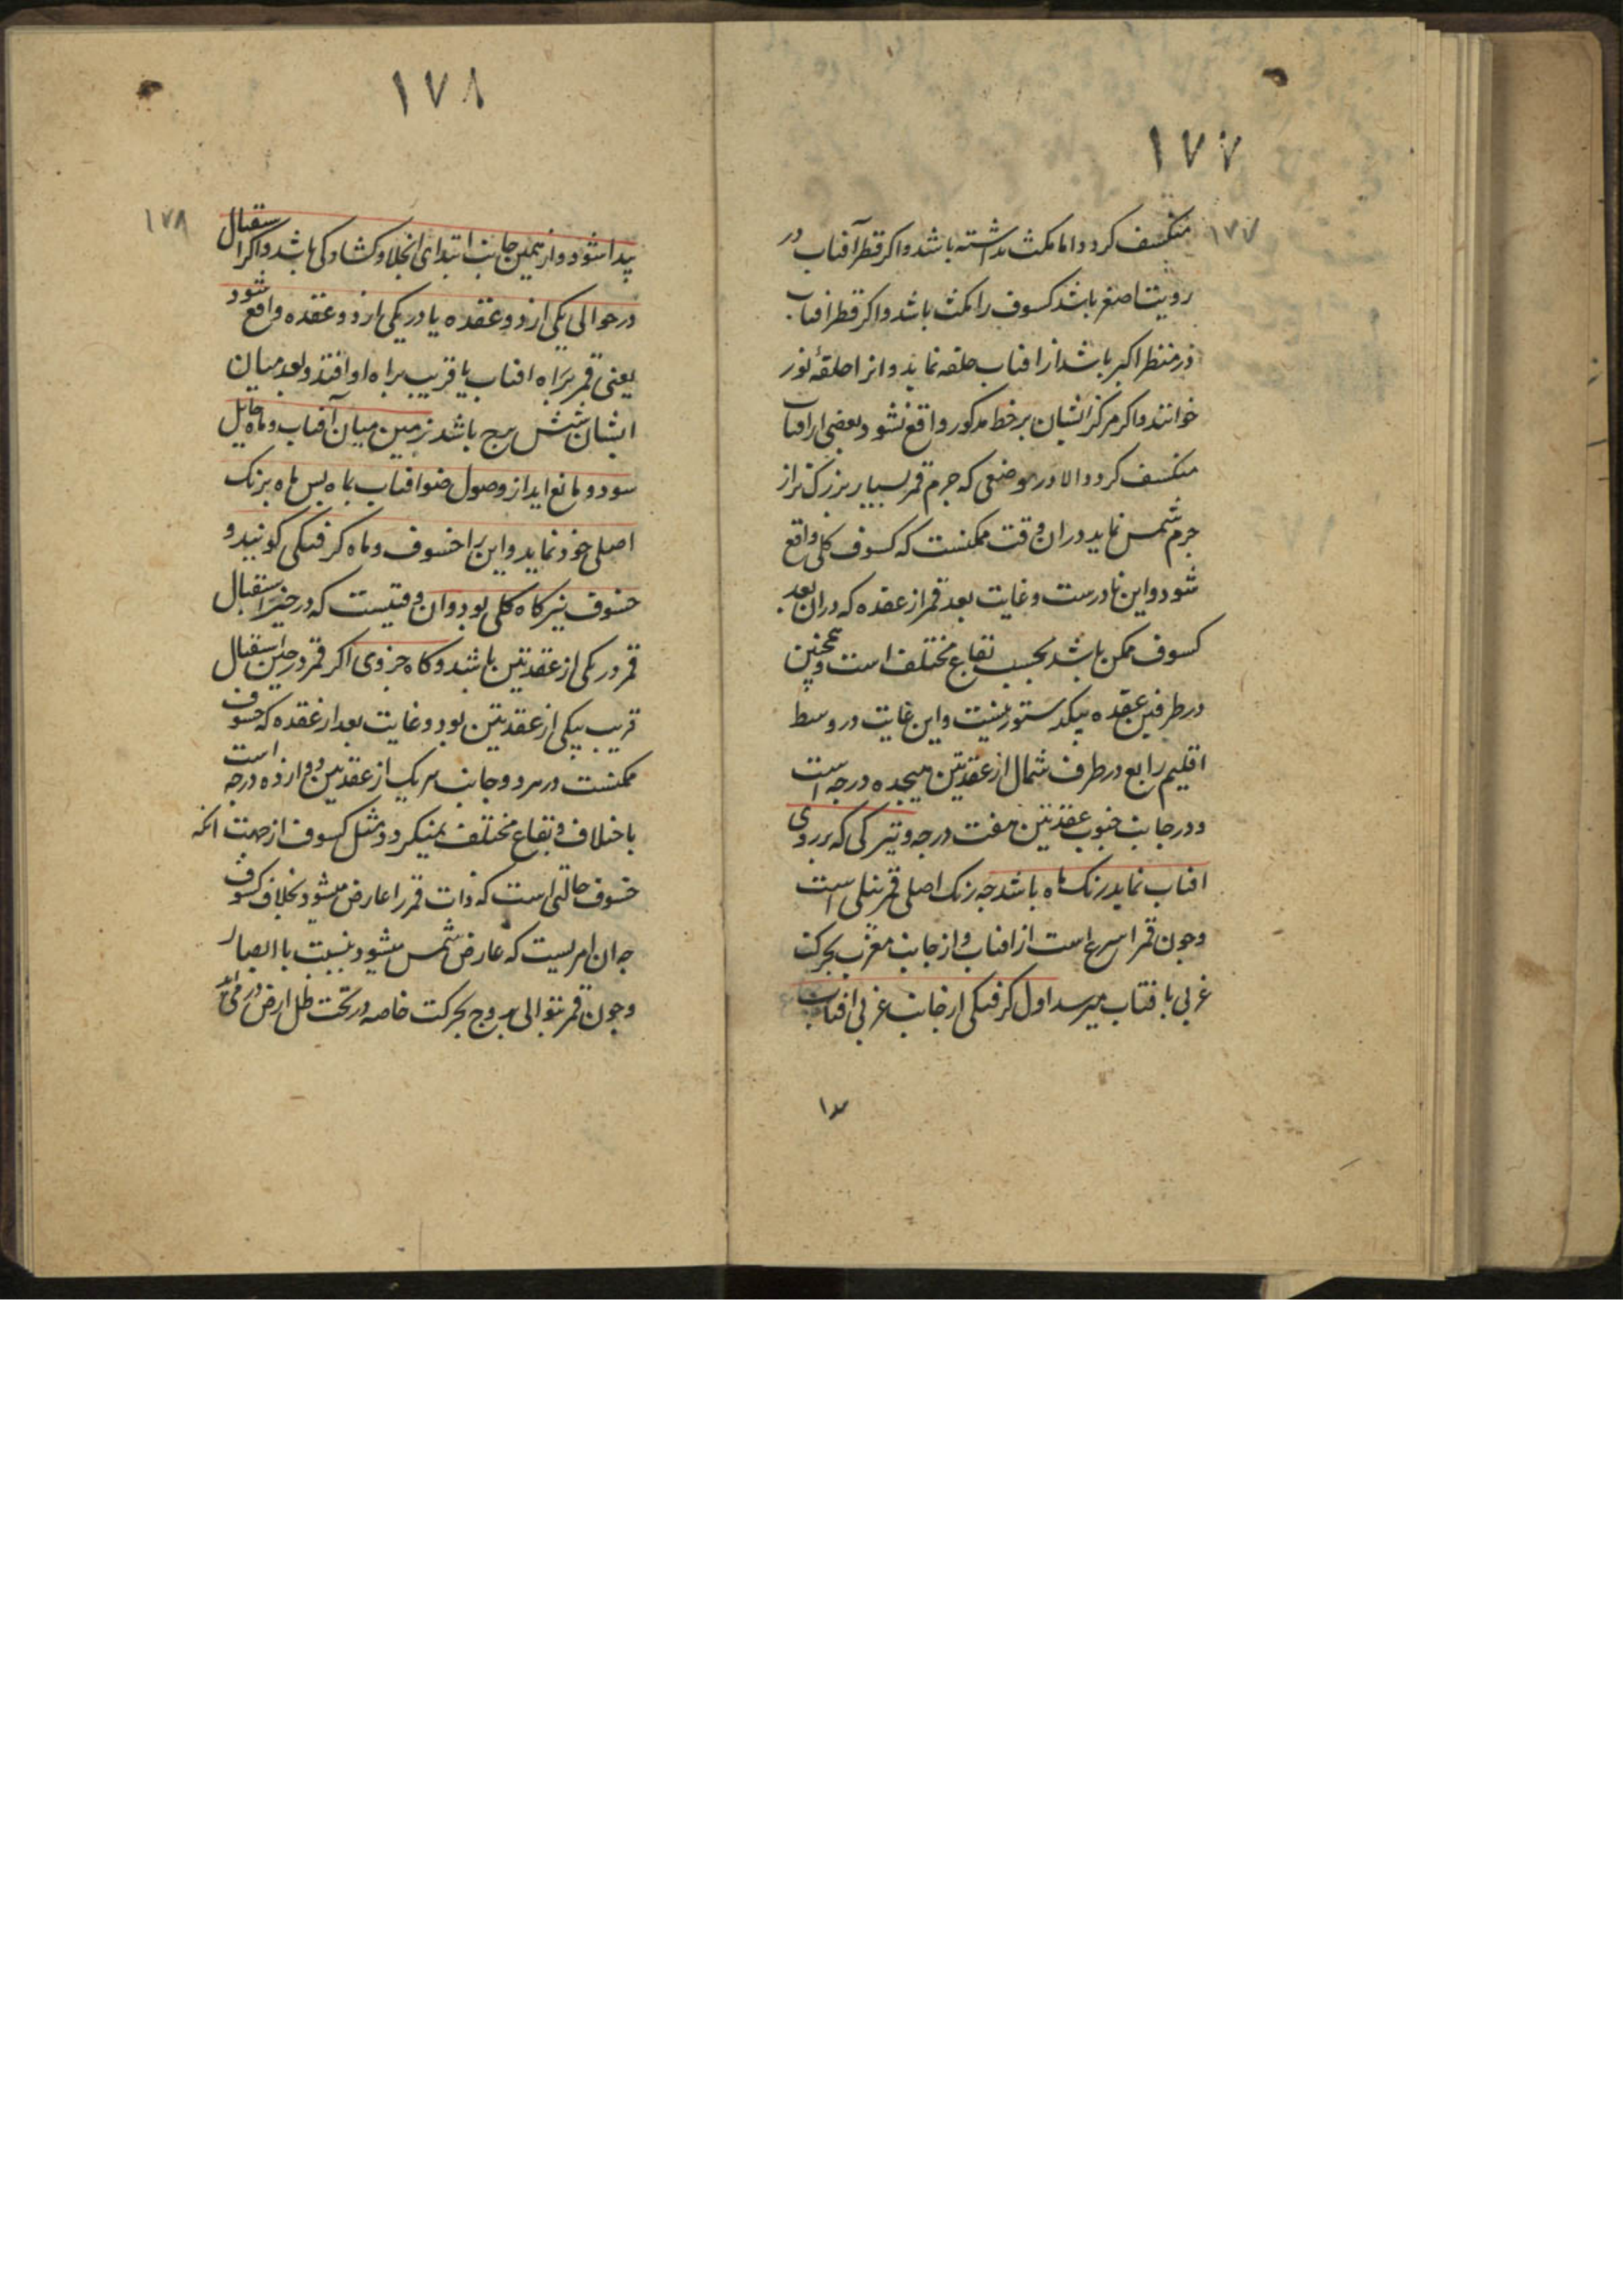 ١٧٧
١٧٧
منکسف کردد اما مکث نداشته باشد و اکر قطر آفتاب در
رویت اصغر باشد کسوف را مکث باشد و اکر قطر افتاب
در منظر اکبر باشد از افتاب حلقه نماید و انرا حلقهٔ نور
خوانند و اکر مرکز انشان بر خط مذکور واقع نشود بعضی از افتاب
منکسف کردد الا در موضعی که جرم قمر بسیار بزرک تر از
جرم شمس نماید دران وقت ممکنست که کسوف کلی واقع
شود و این نادرست و غایت بعد قمر از عقده که دران بعد
کسوف ممکن باشد بحسب بقاع مختلف است و همچنین
در طرفین عقده بیکدستور نیست و این غایت در وسط
اقلیم رابع در طرف شمال از عقدتین هیجده درجه است
و در جانب جنوب عقدتین هفت درجه و تیرکی که بر روی
افتاب نماید رنک ماه باشد جه رنک اصلی قمر نیلی است
و جون قمر اسرع است از افتاب و از جانب مغرب بحرکت
غربی بافتاب میرسد اول کرفتکی از جانب غربی افتاب
١٧٨
١٧٨
پیدا شود و از همین جانب ابتدای انجلا و کشادکی باشد و اکر استقبال
در حوالی یکی از دو عقده یا در یکی از دو عقده واقع شود
یعنی قمر براه افتاب یا قریب براه او افتد و بعد میان
ایشان شش برج باشد زمین میان آفتاب و ماه حایل
سود و مانع اید از وصول ضو افتاب بماه پس ماه برنک
اصلی خود نماید و این را خسوف و ماه کرفتکی کویند و
خسوف نیز کاه کلی بود و ان وقتیست که در حین استقبال
قمر در یکی از عقدتین باشد و کاه جزوی اکر قمر در حین استقبال
قریب بیکی از عقدتین بود و غایت بعد از عقده که خسوف
ممکنست در هر دو جانب هر یک از عقدتین دوازده درجه است
باختلاف بقاع مختلف نمیکردد مثل کسوف از جهت انکه
خسوف حالتی است که ذات قمر را عارض میشود بخلاف کسوف
جه ان امریست که عارض شمس میشود بنسبت با ابصار
و جون قمر بتوالی بروج بحرکت خاصه در تحت ظل ارض در می اید